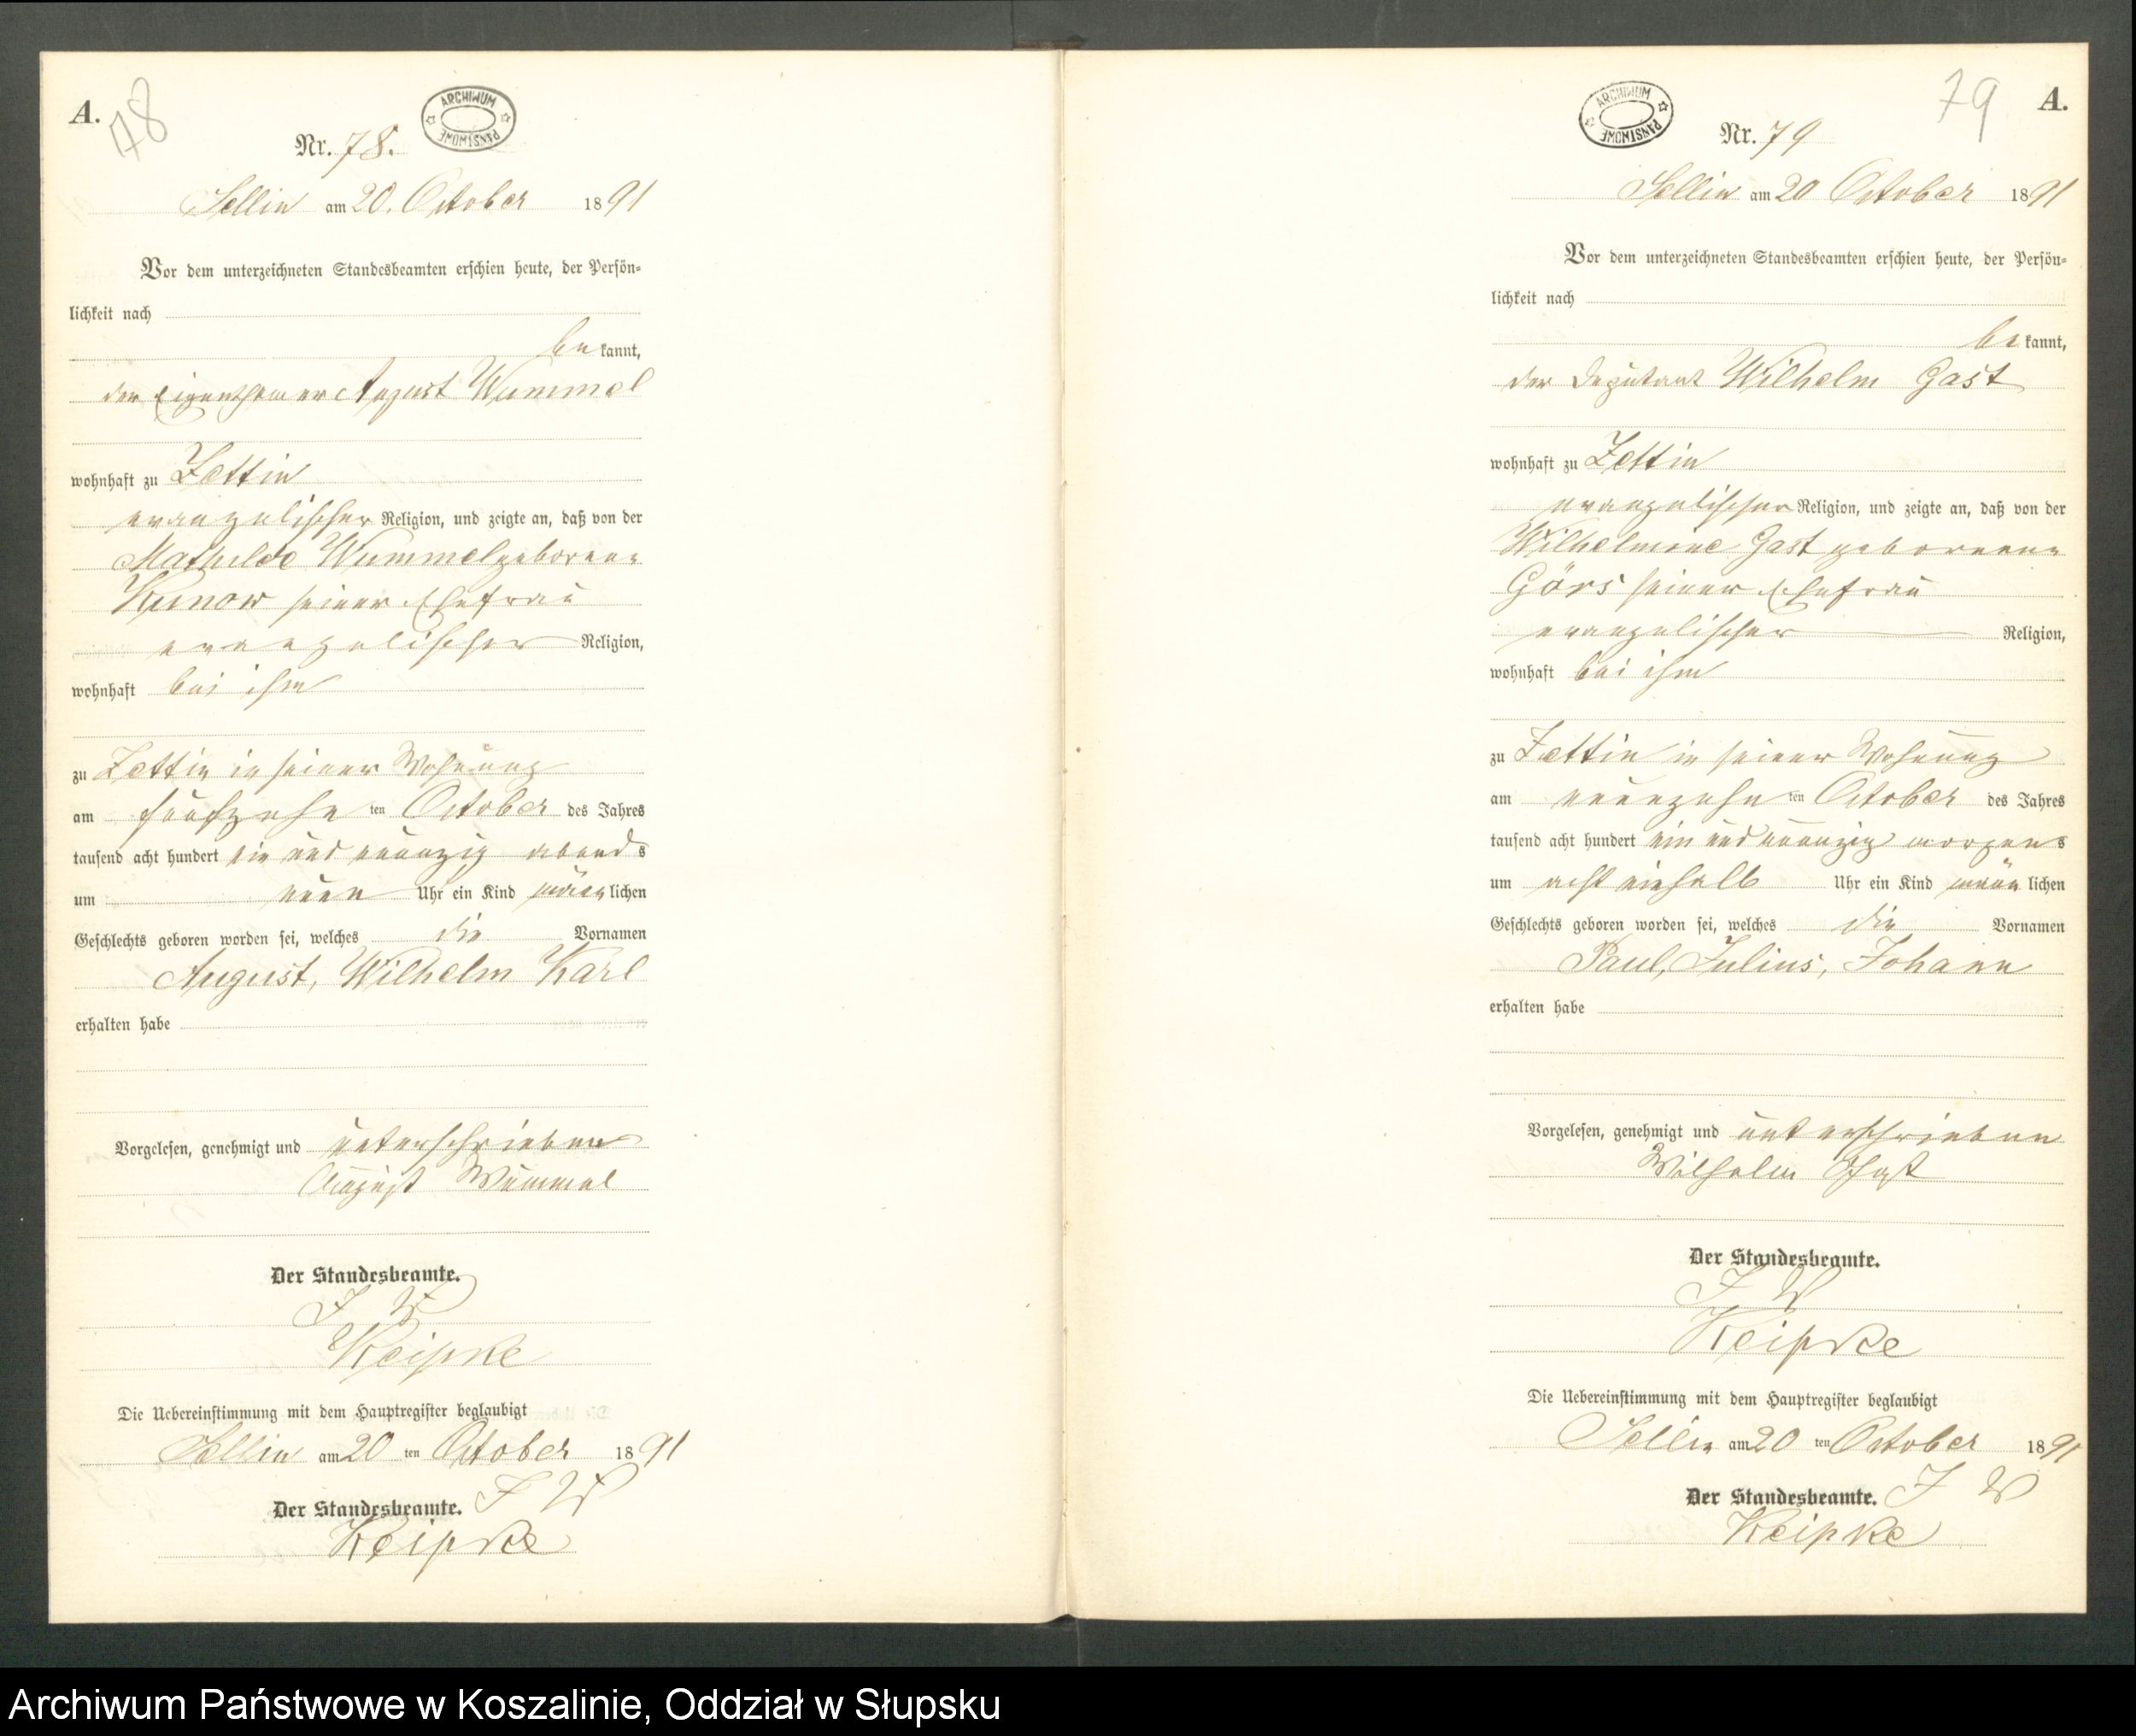 A.
78
ARCHIWUM
PAŃSTWOWE
Nr. 78.
Sellin am 20. October 1891
Vor dem unterzeichneten Standesbeamten erschien heute, der Persön-
lichkeit nach
bekannt,
der Eigenthümer August Wummel
wohnhaft zu Zettin
evangelischer Religion, und zeigte an, daß von der
Mathilde Wummel geborenen
Kunow seiner Ehefrau
evangelischer Religion,
wohnhaft bei ihm
zu Zettin in seiner Wohnung
am fünfzehn ten October des Jahres
tausend acht hundert ein und neunzig abends
um neun Uhr ein Kind männlichen
Geschlechts geboren worden sei, welches die Vornamen
August, Wilhelm Karl
erhalten habe
Vorgelesen, genehmigt und unterschrieben
August Wummel
Der Standesbeamte.
J V
Keipke
Die Uebereinstimmung mit dem Hauptregister beglaubigt
Sellin am 20 ten October 1891
Der Standesbeamte. J V
Keipke
79
A.
ARCHIWUM
PAŃSTWOWE
Nr. 79
Sellin am 20 October 1891
Vor dem unterzeichneten Standesbeamten erschien heute, der Persön-
lichkeit nach
bekannt,
der Deputant Wilhelm Gast
wohnhaft zu Zettin
evangelischer Religion, und zeigte an, daß von der
Wilhelmine Gast geborenen
Görs seiner Ehefrau
evangelischer Religion,
wohnhaft bei ihm
zu Zettin in seiner Wohnung
am neunzehn ten October des Jahres
tausend acht hundert ein und neunzig morgens
um acht einhalb Uhr ein Kind männlichen
Geschlechts geboren worden sei, welches die Vornamen
Paul, Julius, Johann
erhalten habe
Vorgelesen, genehmigt und unterschrieben
Wilhelm Gast
Der Standesbeamte.
J V
Keipke
Die Uebereinstimmung mit dem Hauptregister beglaubigt
Sellin am 20 ten October 1891
Der Standesbeamte. J V
Keipke
Archiwum Państwowe w Koszalinie, Oddział w Słupsku